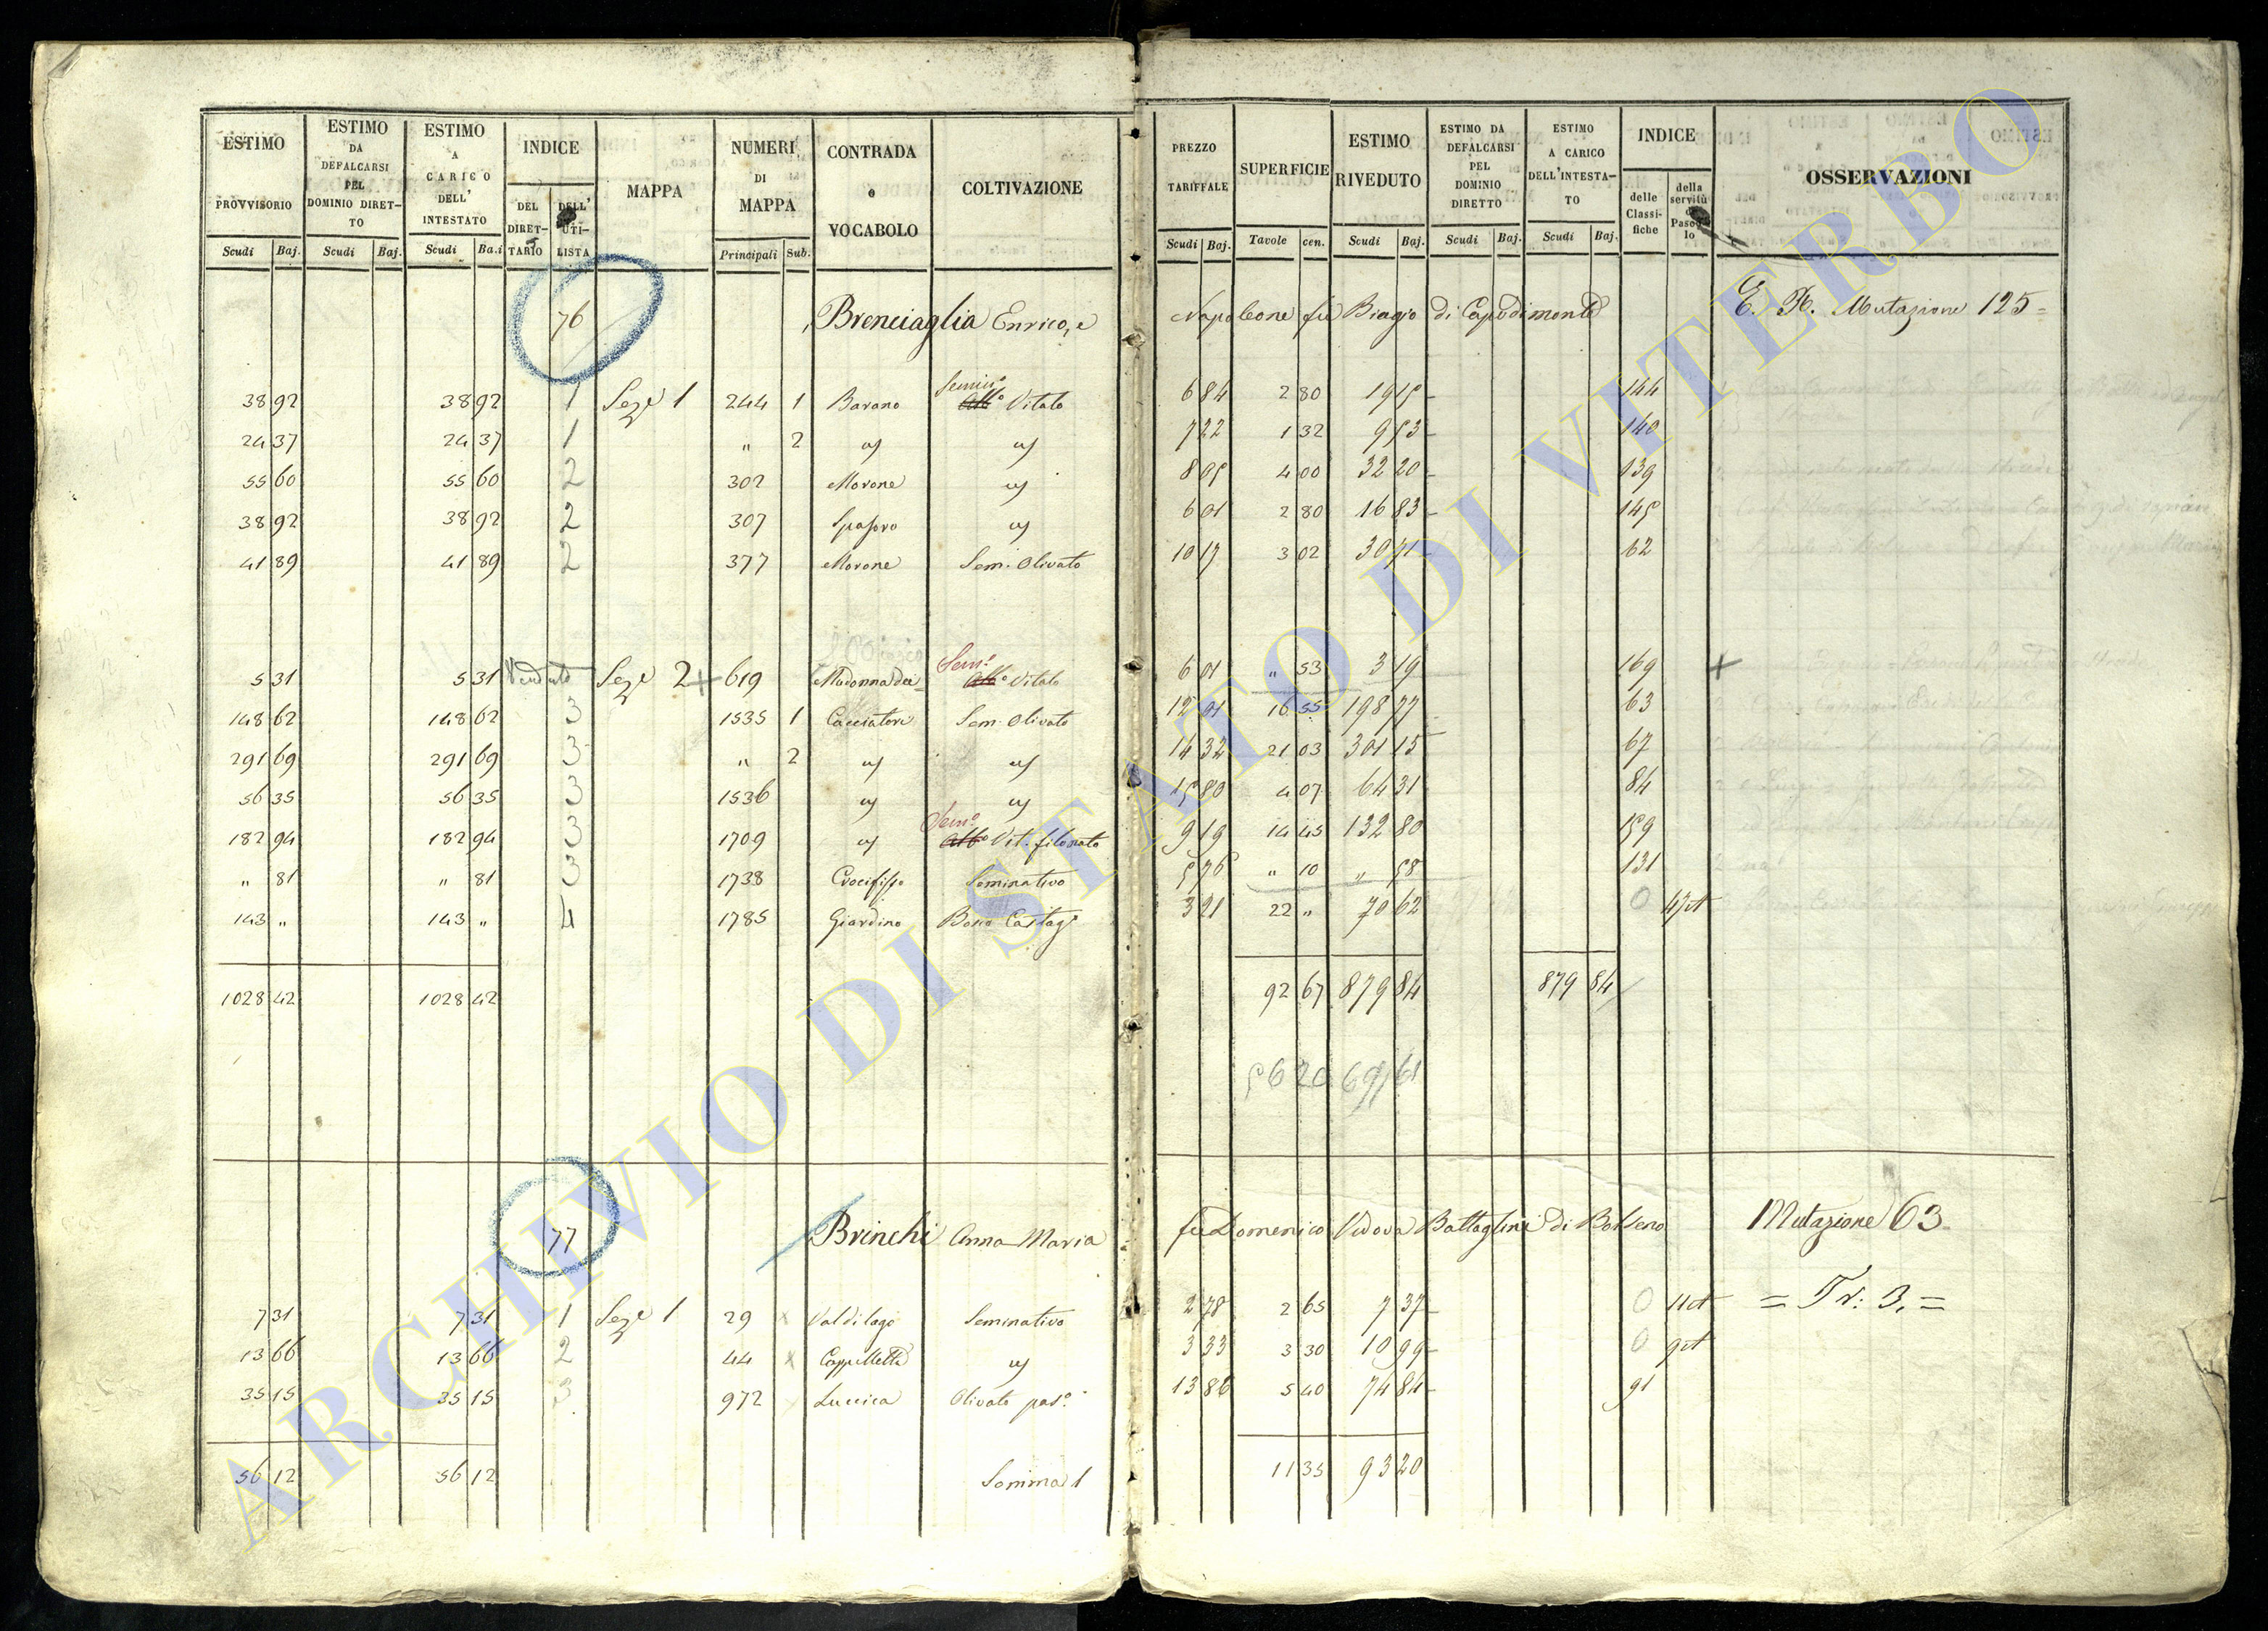 ESTIMO PROVVISORIO | ESTIMO DA DEFALCARSI PEL DOMINIO DIRETTO | ESTIMO A CARICO DELL' INTESTATO | INDICE DEL DIRETTARIO DELL' UTILISTA | MAPPA | NUMERI DI MAPPA | CONTRADA o VOCABOLO | COLTIVAZIONE | PREZZO TARIFFALE | SUPERFICIE | ESTIMO RIVEDUTO | ESTIMO DA DEFALCARSI PEL DOMINIO DIRETTO | ESTIMO A CARICO DELL'INTESTATO | INDICE delle Classifiche della servitù di Pascolo | OSSERVAZIONI
Scudi Baj. | Scudi Baj. | Scudi Ba.i | Principali Sub. | Scudi Baj. | Tavole cen. | Scudi Baj. | Scudi Baj. | Scudi Baj.
76 Brenciaglia Enrico, e Napoleone fu Biagio di Capodimonte Mutazione 125
38 92 38 92 1 Sez.e 1 244 1 Barano Semin.o Vitato 6 84 2 80 19 15 144
24 37 24 37 1 " 2 " " 7 22 1 32 9 53 140
55 60 55 60 2 302 Morone " 8 05 4 00 32 20 139
38 92 38 92 2 307 " 6 01 2 80 16 83 145
41 89 41 89 2 377 Morone Sem. Olivato 10 17 3 02 30 71 62
5 31 5 31 Venduto Sez.e 2 + 619 Madonna del Sem.o Vitato 6 01 " 53 3 19 169 +
148 62 148 62 3 1535 1 Cacciatore Sem. Olivato 12 01 16 55 198 77 63
291 69 291 69 3 " 2 " " 14 32 21 03 301 15 67
56 35 56 35 3 1536 " " 15 80 4 07 64 31 84
182 94 182 94 3 1709 " Sem.o Vit. filonato 9 19 14 45 132 80 159
" 81 " 81 3 1738 Crocifisso Seminativo 5 76 " 10 " 58 131
143 " 143 " 4 1785 Giardino Bosco Castag.e 3 21 22 " 70 62 0
1028 42 1028 42 92 67 879 84 879 84
77 Brinchi Anna Maria fu Domenico Vedova Battaglini di Bolseno Mutazione 63
7 31 7 31 1 Sez.e 1 29 x Valdilago Seminativo 2 78 2 65 7 37 0 = Tr: 3. =
13 66 13 66 2 44 x Cappelletta " 3 33 3 30 10 99 0
35 15 35 15 3 972 Luccica Olivato pas.o 13 86 5 40 74 84 91
56 12 56 12 Somma 1 11 35 93 20
ARCHIVIO DI STATO DI VITERBO